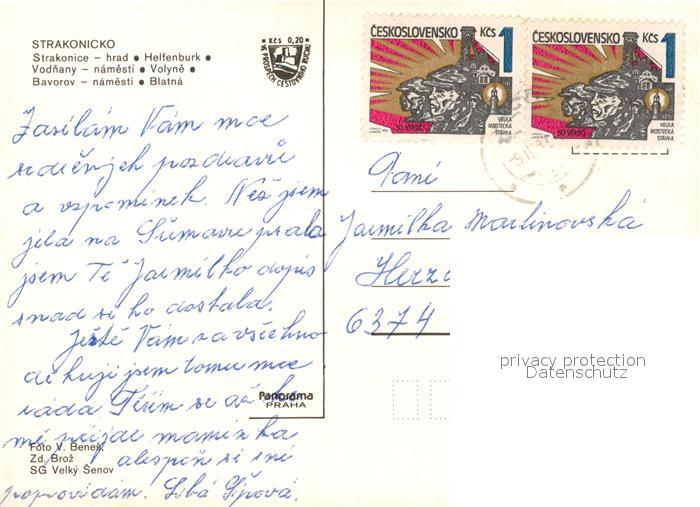 STRAKONICKO
Strakonice – hrad ● Helfenburk ●
Vodňany – náměstí ● Volyně ●
Bavorov – náměstí ● Blatná
● Kčs 0,20 ●
VE PROSPĚCH CESTOVNÍHO RUCHU
ČESKOSLOVENSKO Kčs 1
50. VÝROČÍ
VELKÁ
MOSTECKÁ
STÁVKA
ČESKOSLOVENSKO Kčs 1
50. VÝROČÍ
VELKÁ
MOSTECKÁ
STÁVKA
Zasílám Vám moc
srdečných pozdravů
a vzpomínek. Než jsem
jela na Šumavu psala
jsem Tě Jarmilko dopis
snad si ho dostala.
Ještě Vám za všechno
děkuji jsem tomu moc
ráda Těším se až
mě přijde maminka
alespoň si
popovídám. Libá
Paní
Jarmilka Martinovská
6374
Panorama
PRAHA
Foto V. Beneš,
Zd. Brož
SG Velký Šenov
privacy protection
Datenschutz